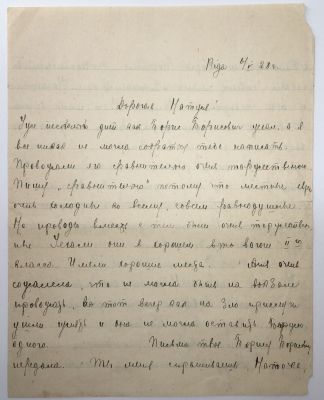 Рига 6/V 28 г.
Дорогая Матуся!
дней как Борис Борисович уехал, а я
все никак не могла собраться тебе написать.
Провожали его сравнительно очень торжественно.
Пишу „сравнительно" потому что местные евреи
очень холодны ко всему, совсем равнодушные.
Но проводы вместе с тем были очень торжествен-
ные. Уехали они в хорошем вагоне II
класса. Имели хорошие места. очень
сожалела, что не могла быть на вокзале
провожать, но тот вечер как на зло прислуга
ушла и она не могла оставить
одного. Письмо твое Борису Борисовичу
передала. Ты меня спрашиваешь, Маточка,